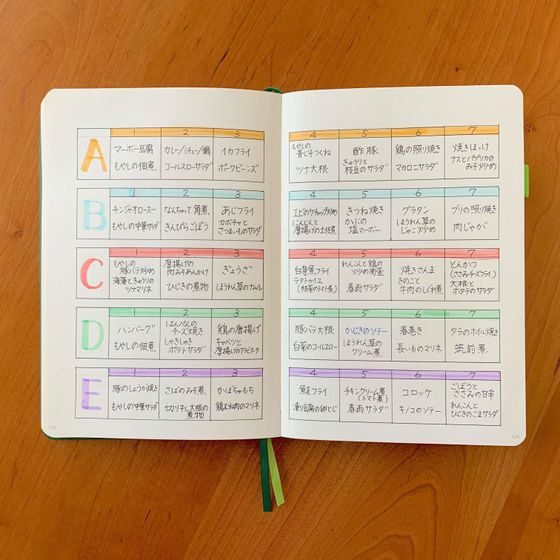 1 2 3 4 5 6 7
A
マーボー豆腐
もやしの佃煮
カレー/シチュー/鍋
コールスローサラダ
イカフライ
ポークビーンズ
もやしの
青じそつくね
ツナ大根
酢豚
きゅうりと
枝豆のサラダ
鶏の照り焼き
マカロニサラダ
焼きほっけ
ナスとパプリカの
みそ炒め
1 2 3 4 5 6 7
B
チンジャオロースー
もやしの中華サラダ
なんちゃって角煮
きんぴらごぼう
あじフライ
カボチャと
さつまいものサラダ
エビのケチャップ炒め
こんにゃくと
厚揚げの土佐煮
きつね焼き
かぶの
塩マーボー
グラタン
ほうれん草の
じゃこ炒め
ブリの照り焼き
肉じゃが
1 2 3 4 5 6 7
C
もやしの
豚バラ炒め
海藻ときゅうりの
ツナマリネ
厚揚げの
肉みそあんかけ
ひじきの煮物
ぎょうざ
ほうれん草のナムル
白身魚フライ
ラタトゥイユ
(根菜のトマト煮)
れんこんと鶏の
炒め南蛮
春雨サラダ
焼きさんま
きのこと
牛肉のしぐれ煮
とんかつ
(ささみチーズフライ)
大根と
ホタテのサラダ
1 2 3 4 5 6 7
D
ハンバーグ
もやしの佃煮
はんぺんの
チーズ焼き
しゃきしゃき
ポテトサラダ
鶏の唐揚げ
キャベツと
豚バラ大根
白菜のコールスロー
かじきのソテー
ほうれん草の
クリーム煮
春巻き
長いものマリネ
タラのホイル焼き
筑前煮
1 2 3 4 5 6 7
E
豚のしょうが焼き
もやしの中華サラダ
さばのみそ煮
切り干し大根の
煮物
かぼちゃもち
鶏むね肉のマリネ
鮭フライ
凍り豆腐の卵とじ
チキンクリーム煮
(トマト煮)
春雨サラダ
コロッケ
キノコのソテー
ごぼうと
ささみの甘辛
れんこんと
ひじきのごまサラダ